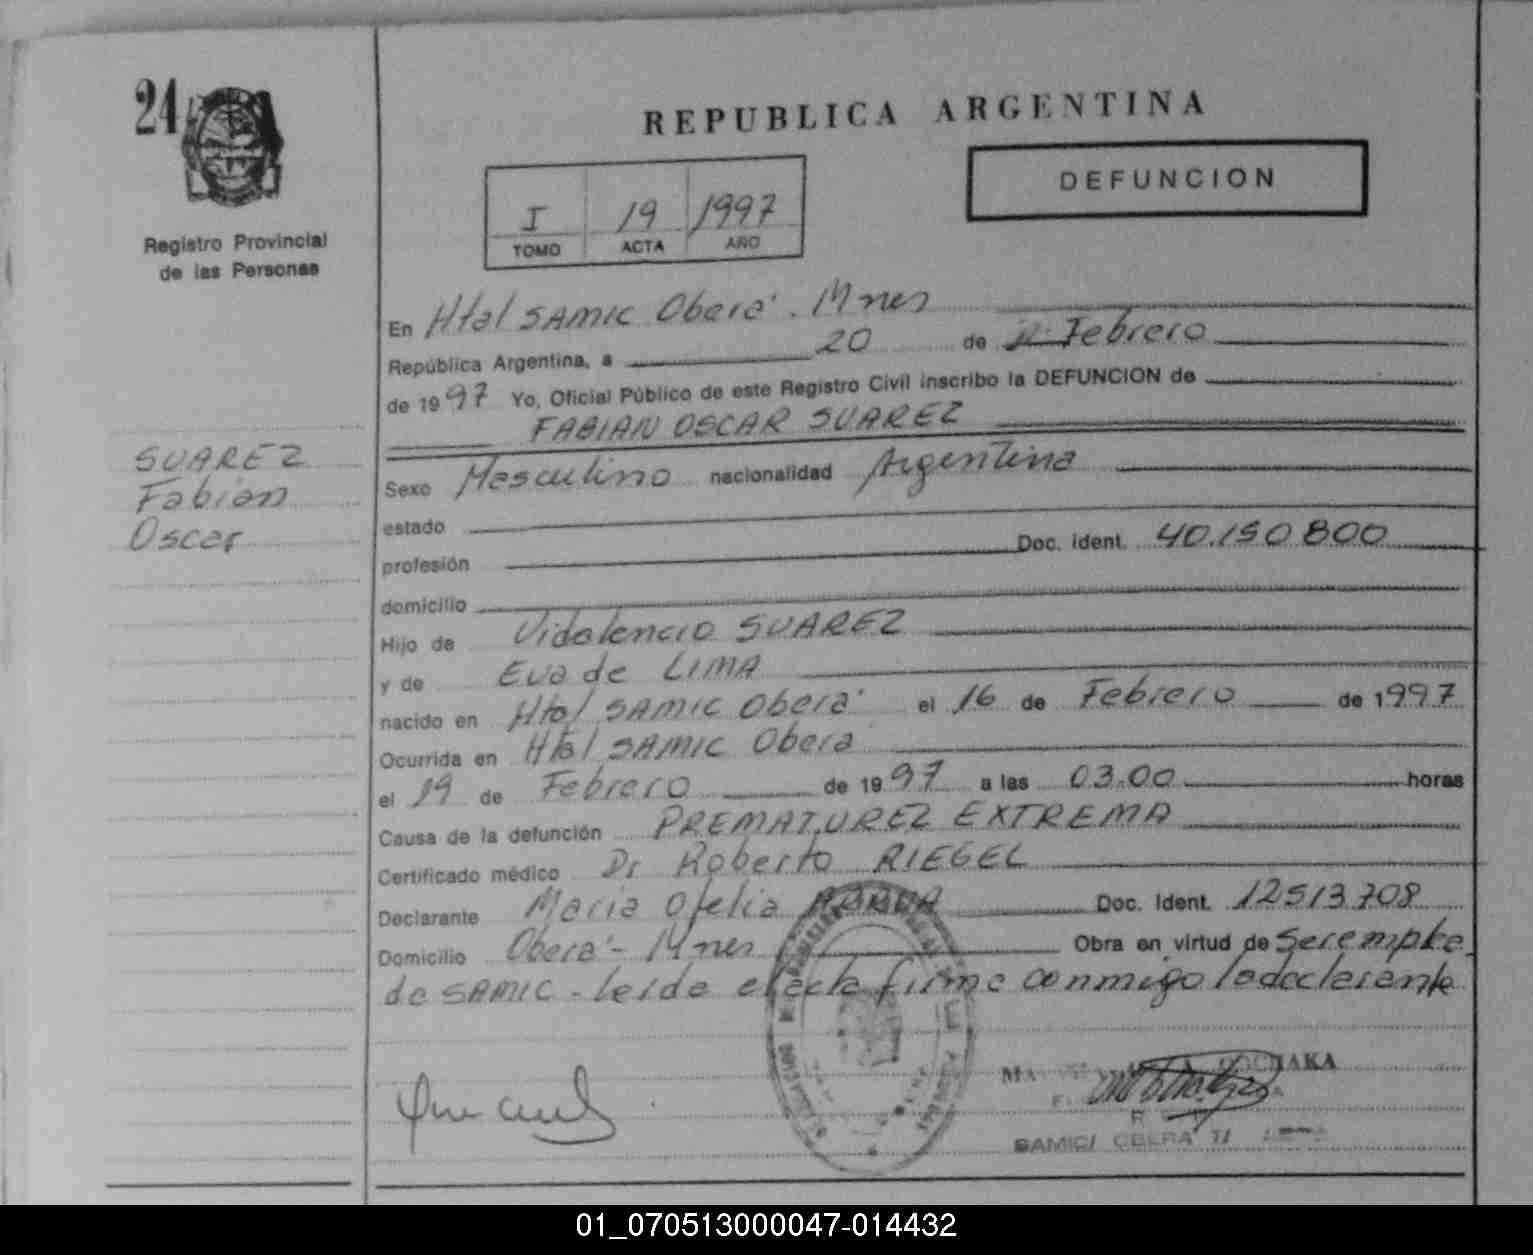 24
Registro Provincial
de las Personas
SUAREZ
Fabian
Oscar
REPUBLICA ARGENTINA
DEFUNCION
I 19 1997
TOMO ACTA AÑO
En Htal SAMIC Oberá. Mnes
República Argentina, a 20 de Febrero
de 1997 Yo, Oficial Público de este Registro Civil inscribo la DEFUNCION de
FABIAN OSCAR SUAREZ
Sexo Masculino nacionalidad Argentina
estado
profesión Doc. ident. 40.150.800
domicilio
Hijo de Vidalencio SUAREZ
y de Eva de LIMA
nacido en Htal SAMIC Oberá el 16 de Febrero de 1997
Ocurrida en Htal SAMIC Obera
el 19 de Febrero de 1997 a las 03.00 horas
Causa de la defunción PREMATUREZ EXTREMA
Certificado médico Dr Roberto RIEGEL
Declarante Maria Ofelia Doc. Ident. 12513.708
Domicilio Oberá - Mnes Obra en virtud de ser emplte
de SAMIC - leida el acta firma conmigo la declarante
SAMIC/ OBERA
01_070513000047-014432